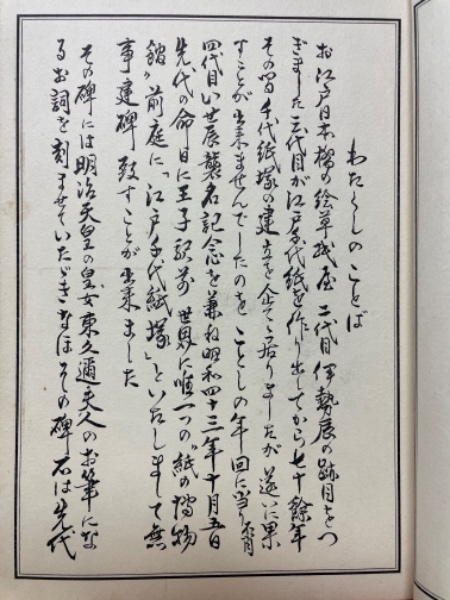 わたくしのことば
お江戸日本橋の絵草紙屋 二代目 伊勢辰の跡目をつ
ぎました三代目が江戸千代紙を作り出してから七十餘年
その間 千代紙塚の建立を企て居りましたが 遂に果
すことが出来ませんでしたのを ことしの年回に当り
四代目いせ辰襲名記念を兼ね昭和四十三年十月五日
先代の命日に王子駅前 世界に唯一つの〝紙の博物
館〟前庭に「江戸千代紙塚」といたしまして無
事建碑致すことが出来ました
その碑には明治天皇の皇女東久邇夫人のお筆にな
るお詞を刻ませていただきなほその碑石は先代